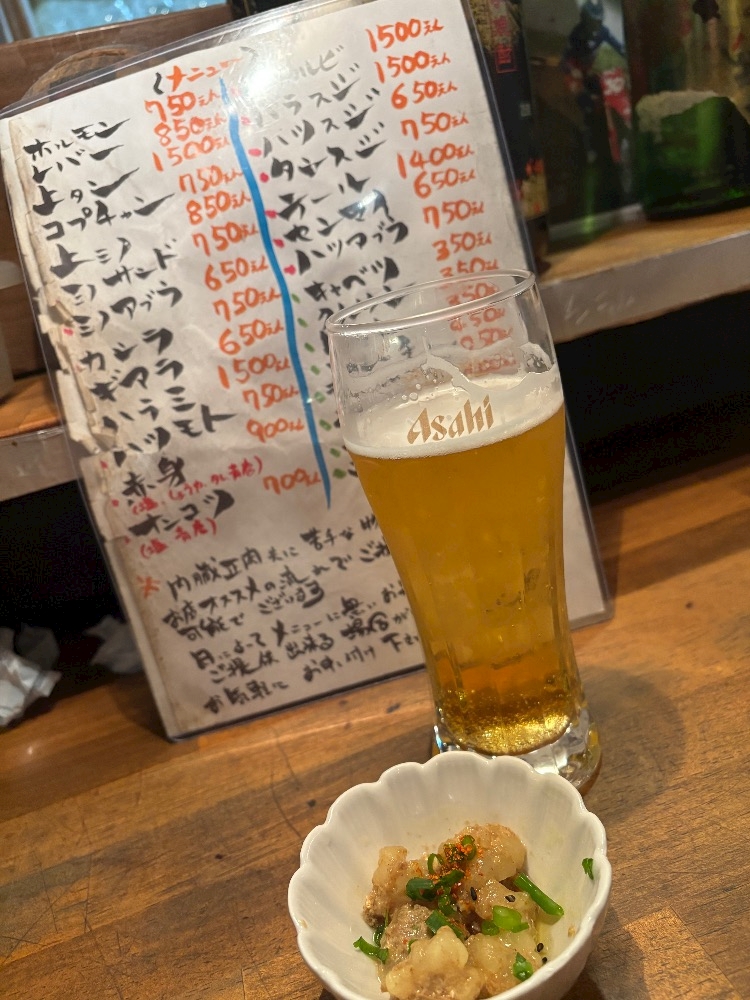 メニュー
ホルモン 750えん
レバー 850えん
上タン 1500えん
コプチャン 750えん
上ミノ 850えん
ミノサンド 750えん
ミノアブラ 650えん
カシラ 750えん
ギアラ 650えん
ハラミ 1500えん
ハツモト 750えん
赤身 900えん
ナンコツ 700えん
ルビ 1500えん
バラスジ 1500えん
ハツスジ 650えん
タンスジ 750えん
テール 1400えん
センマイ 650えん
ハツアブラ 750えん
キャベツ 350えん
350えん
※ 内臓正肉共に 苦手な
お店オススメの流れで
可能でございます
日によってメニューに無い
ご提供出来る場合が
お気軽に お申し付け下さ
Asahi